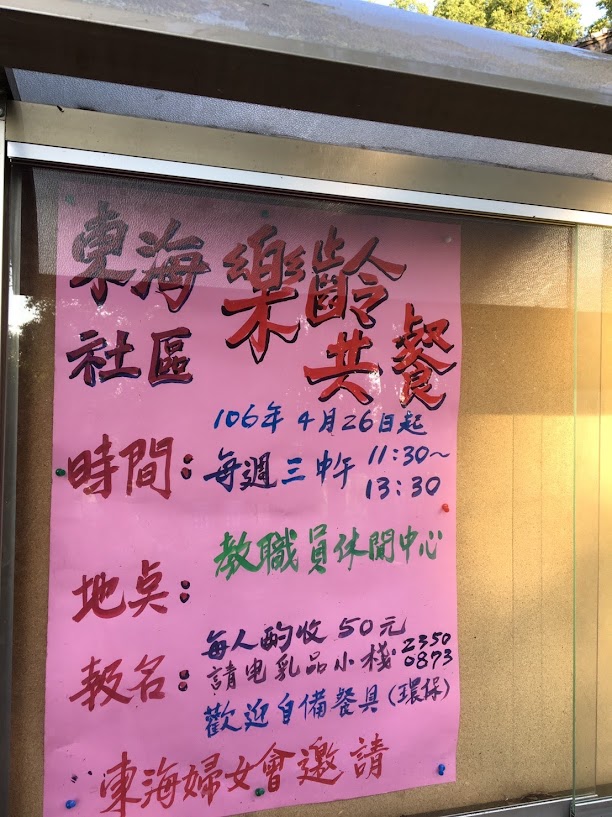 東海 樂齡
社區 共餐
106年 4月26日起
時間：每週三中午 11:30~
13:30
教職員休閒中心
地点：
每人酌收 50元
報名：請电乳品小棧 2350
0873
歡迎自備餐具(環保)
東海婦女會邀請